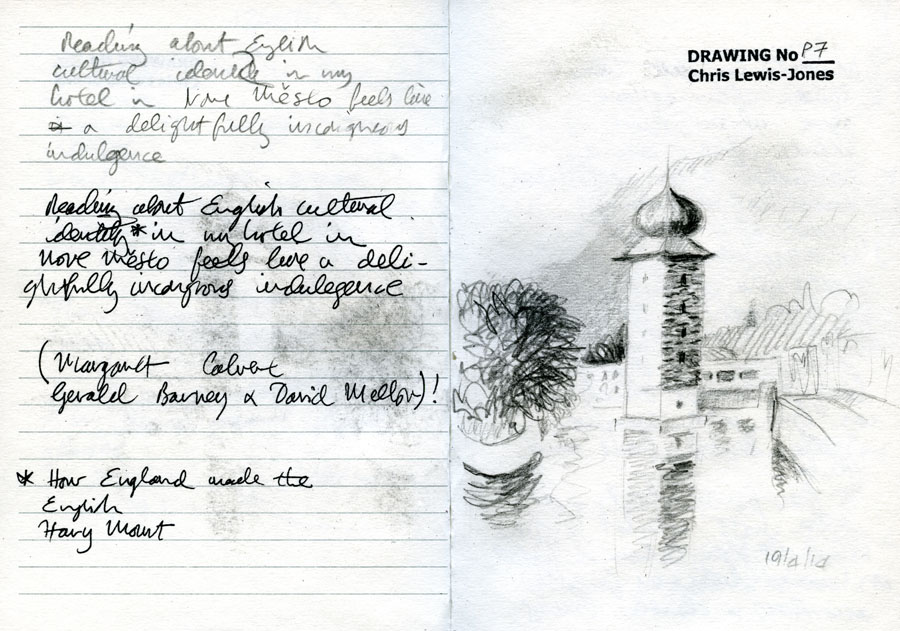 Reading about English
cultural identity in my
hotel in Nove Město feels like
a delightfully incongruous
indulgence
Reading about English cultural
identity* in my hotel in
Nove Město feels like a deli-
ghtfully incongruous indulegence
(Margaret Calvert
Gerald Barney & David Mellor)!
* How England made the
English
Harry Mount
DRAWING No P7
Chris Lewis-Jones
19/4/14